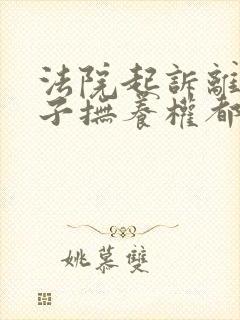 法院起訴離
子撫養權都
姚慕雙